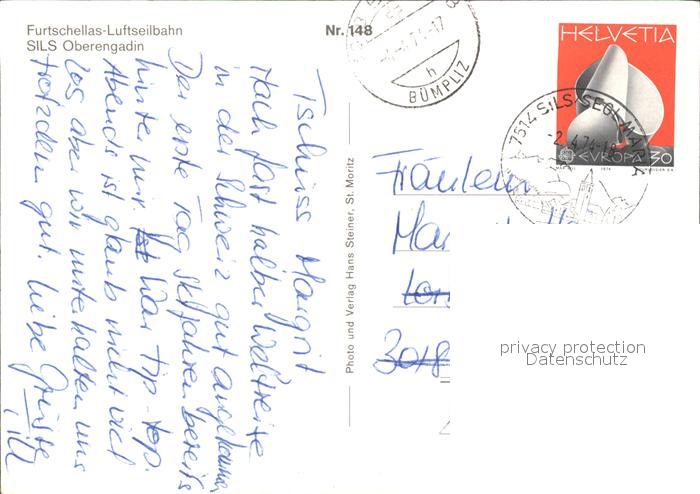 Furtschellas-Luftseilbahn
SILS Oberengadin
Nr. 148
Tschüss Margrit
Nach fast halber Weltreise
in der Schweiz gut angekommen
Der erste Tag Skifahren bereits
hinter mir. War tip-top.
Abends ist glaub nicht viel
los aber wir unterhalten uns
trotzdem gut. Liebe Grüsse
Photo und Verlag Hans Steiner, St. Moritz
BÜMPLIZ
h
HELVETIA
EUROPA 30
7514 SILS/SEGL MARIA
-2.4.74-18
Fräulein
Mar
3018
privacy protection
Datenschutz